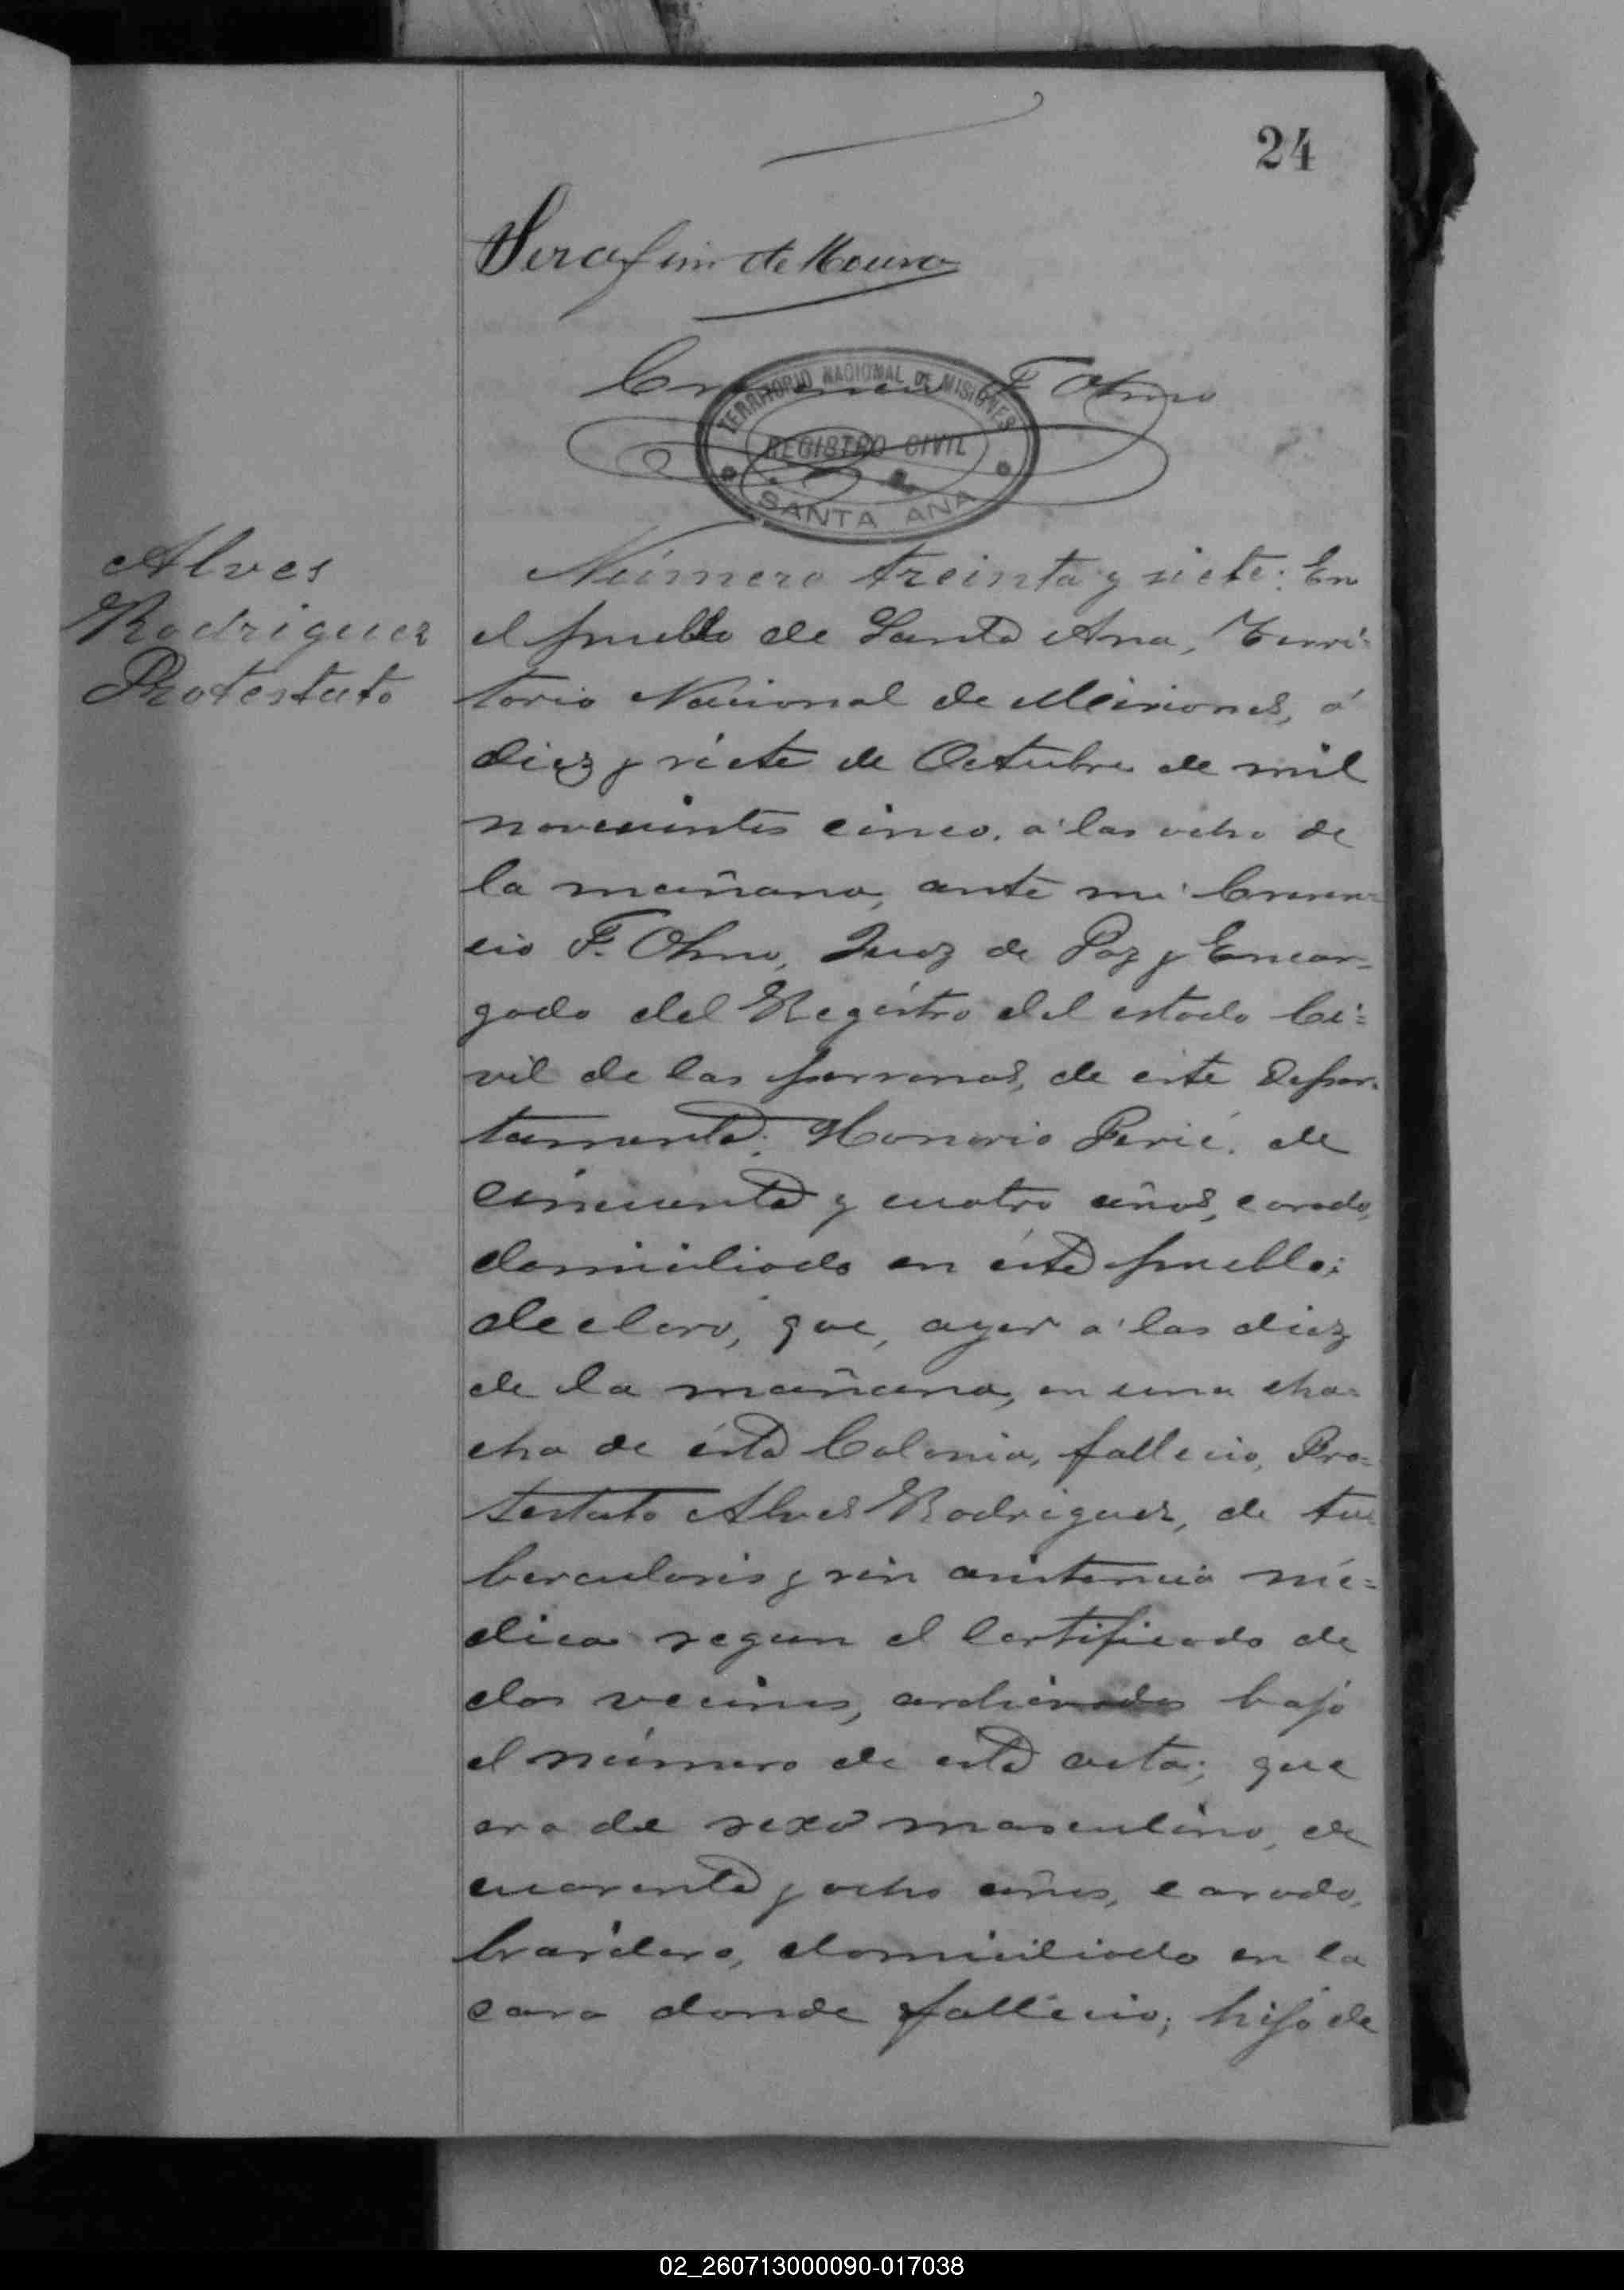 24
Serafin de Moura
F. Ohno
TERRITORIO NACIONAL DE MISIONES
REGISTRO CIVIL
SANTA ANA
Alves
Rodriguez
Protestato
Número treinta y siete: En
el pueblo de Santa Ana, Terri=
torio Nacional de Misiones, á
diez y siete de Octubre de mil
novecientos cinco, a las ocho de
la mañana, ante mi
cio F. Ohno, Juez de Paz y Encar=
gado del Registro del estado Ci=
vil de las personas, de este Depar=
tamento; Honorio Perié, de
cincuenta y cuatro años, casado,
domiciliado en éste pueblo;
declaro, que, ayer a las diez
de la mañana, en una cha=
cha de ésta Colonia, fallecio, Pro=
testato Alves Rodriguez, de tu=
berculosis y sin asistencia mé=
dica segun el certificado de
dos vecinos, archivados bajo
el número de esta acta; que
era de sexo masculino, de
cuarenta y ocho años, casado,
brasilero, domiciliado en la
casa donde fallecio; hijo de
02_260713000090-017038